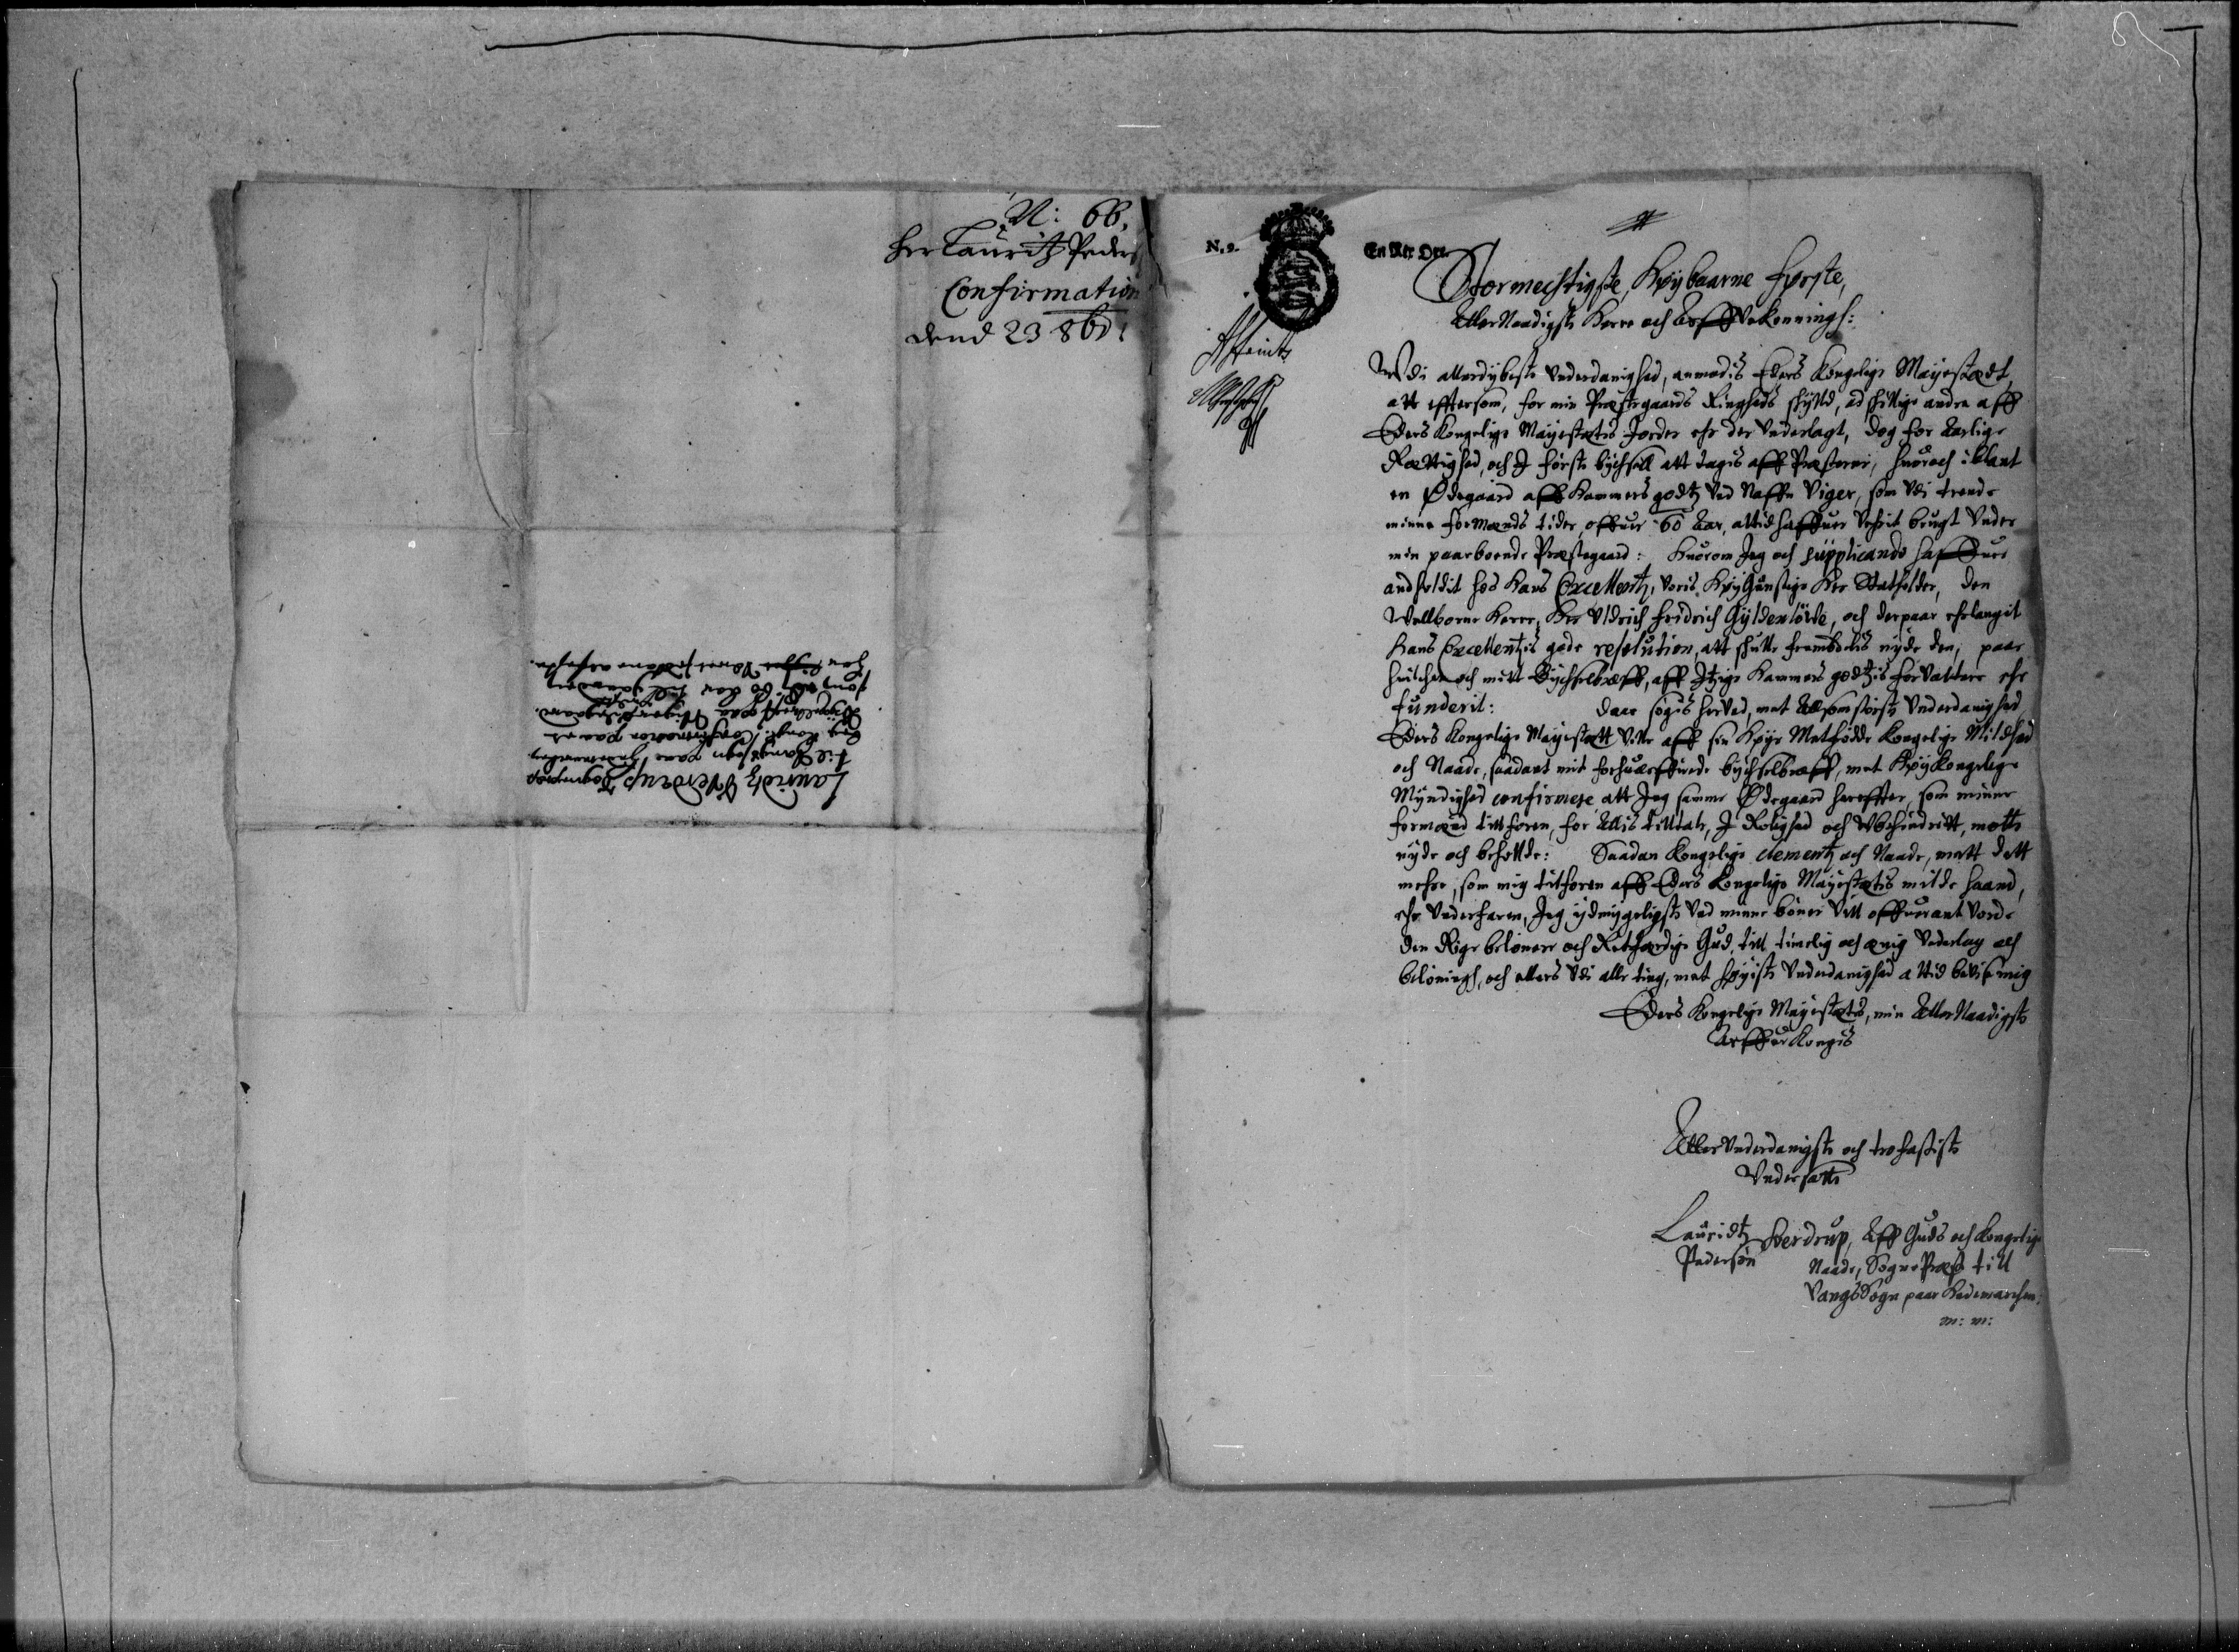 N: 66,
Her Lauritz Peders
Confirmation
dend 23 8br
Lauridtz Sverdrup Sogneprest
til Vangs sogn paa Hedemarchen
beg. Kongl: Confirmation paa et
Bygselbreff paa Viger Ødegaard.
som udj 60 Aar till gaarden
N. 9.
En Rix Ort.
Stormechtigste, Høybaarne første,
Aller Naadigste Herre och Arffve Konningh:
Udi allerdybeste Underdanighed, anmodis Eders Kongelige Mayestædt,
att effterson, for min Præstegaards Ringheds skyld, adskillige andre aff
Eders Kongelige Mayestætis Jorder ehr der Underlagt, dog for Aarlige
Rættighed, och J første bychsell att tagis aff Præsterne, huoroch iblant
en Ødegaard aff Hammers godtz Ved Naffn Viger, som Udi trende
minne formænds tider, offuer 60 Aar, altid haffuer Vehrit brugt Under
min paaboende Præstegaard: Huorom Jeg och supplicando haffuer
andholdit hos Hans Excellentz, Voris Høygunstige Her Statholder, den
Wellborne Herre, Her Uldrich Fridrich Gyldenlöwe, och derpaa erlangit
Hans Excellentzis gode resolution, att skulle frembdelis nyde den, paa
huilchen och mitt Bychselbreff, aff Itzige Hammers godtzis forvaltere ehr
funderit: Daa søgis herved, met Allsomstørste Underdanighed
Eders Kongelige Mayestætt Ville aff sin Høye Metfødde Kongelige Mildhed
och Naade, saadant mit forhuerffuede bychselbreff, met Høy Kongelige
Myndighed confirmere att Jeg samme Ødegaard hereffter, som minne
formænd tillforn, for Allis tilltale, J Rolighed och Ubehindritt, motte
nyde och beholde: Saadan Kongelige clementz och Naade, mett dett
mehre, som mig tilforn aff Eders Kongelige Mayestætis milde haand,
ehr Vederfaren, Jeg ydmygeligste Ved minne bøner Vill offuerant Vorde
den Rige belønere och Retferdige Gud, till timelig och ævig Vederlag och
belöningh, och ellers Udi alle ting, met høyiste Underdanighed altid bevise mig
Eders Kongelige Mayestætis, min Aller Naadigste
Arffue Kongis
Aller Underdanigste och trofastiste
Undersatte
Lauridtz Sverdrup, Aff Guds och Kongelige
Pedersøn Naade, Sogne Præst till
Vangs Sogn paa Hedemarchen:
m: m: